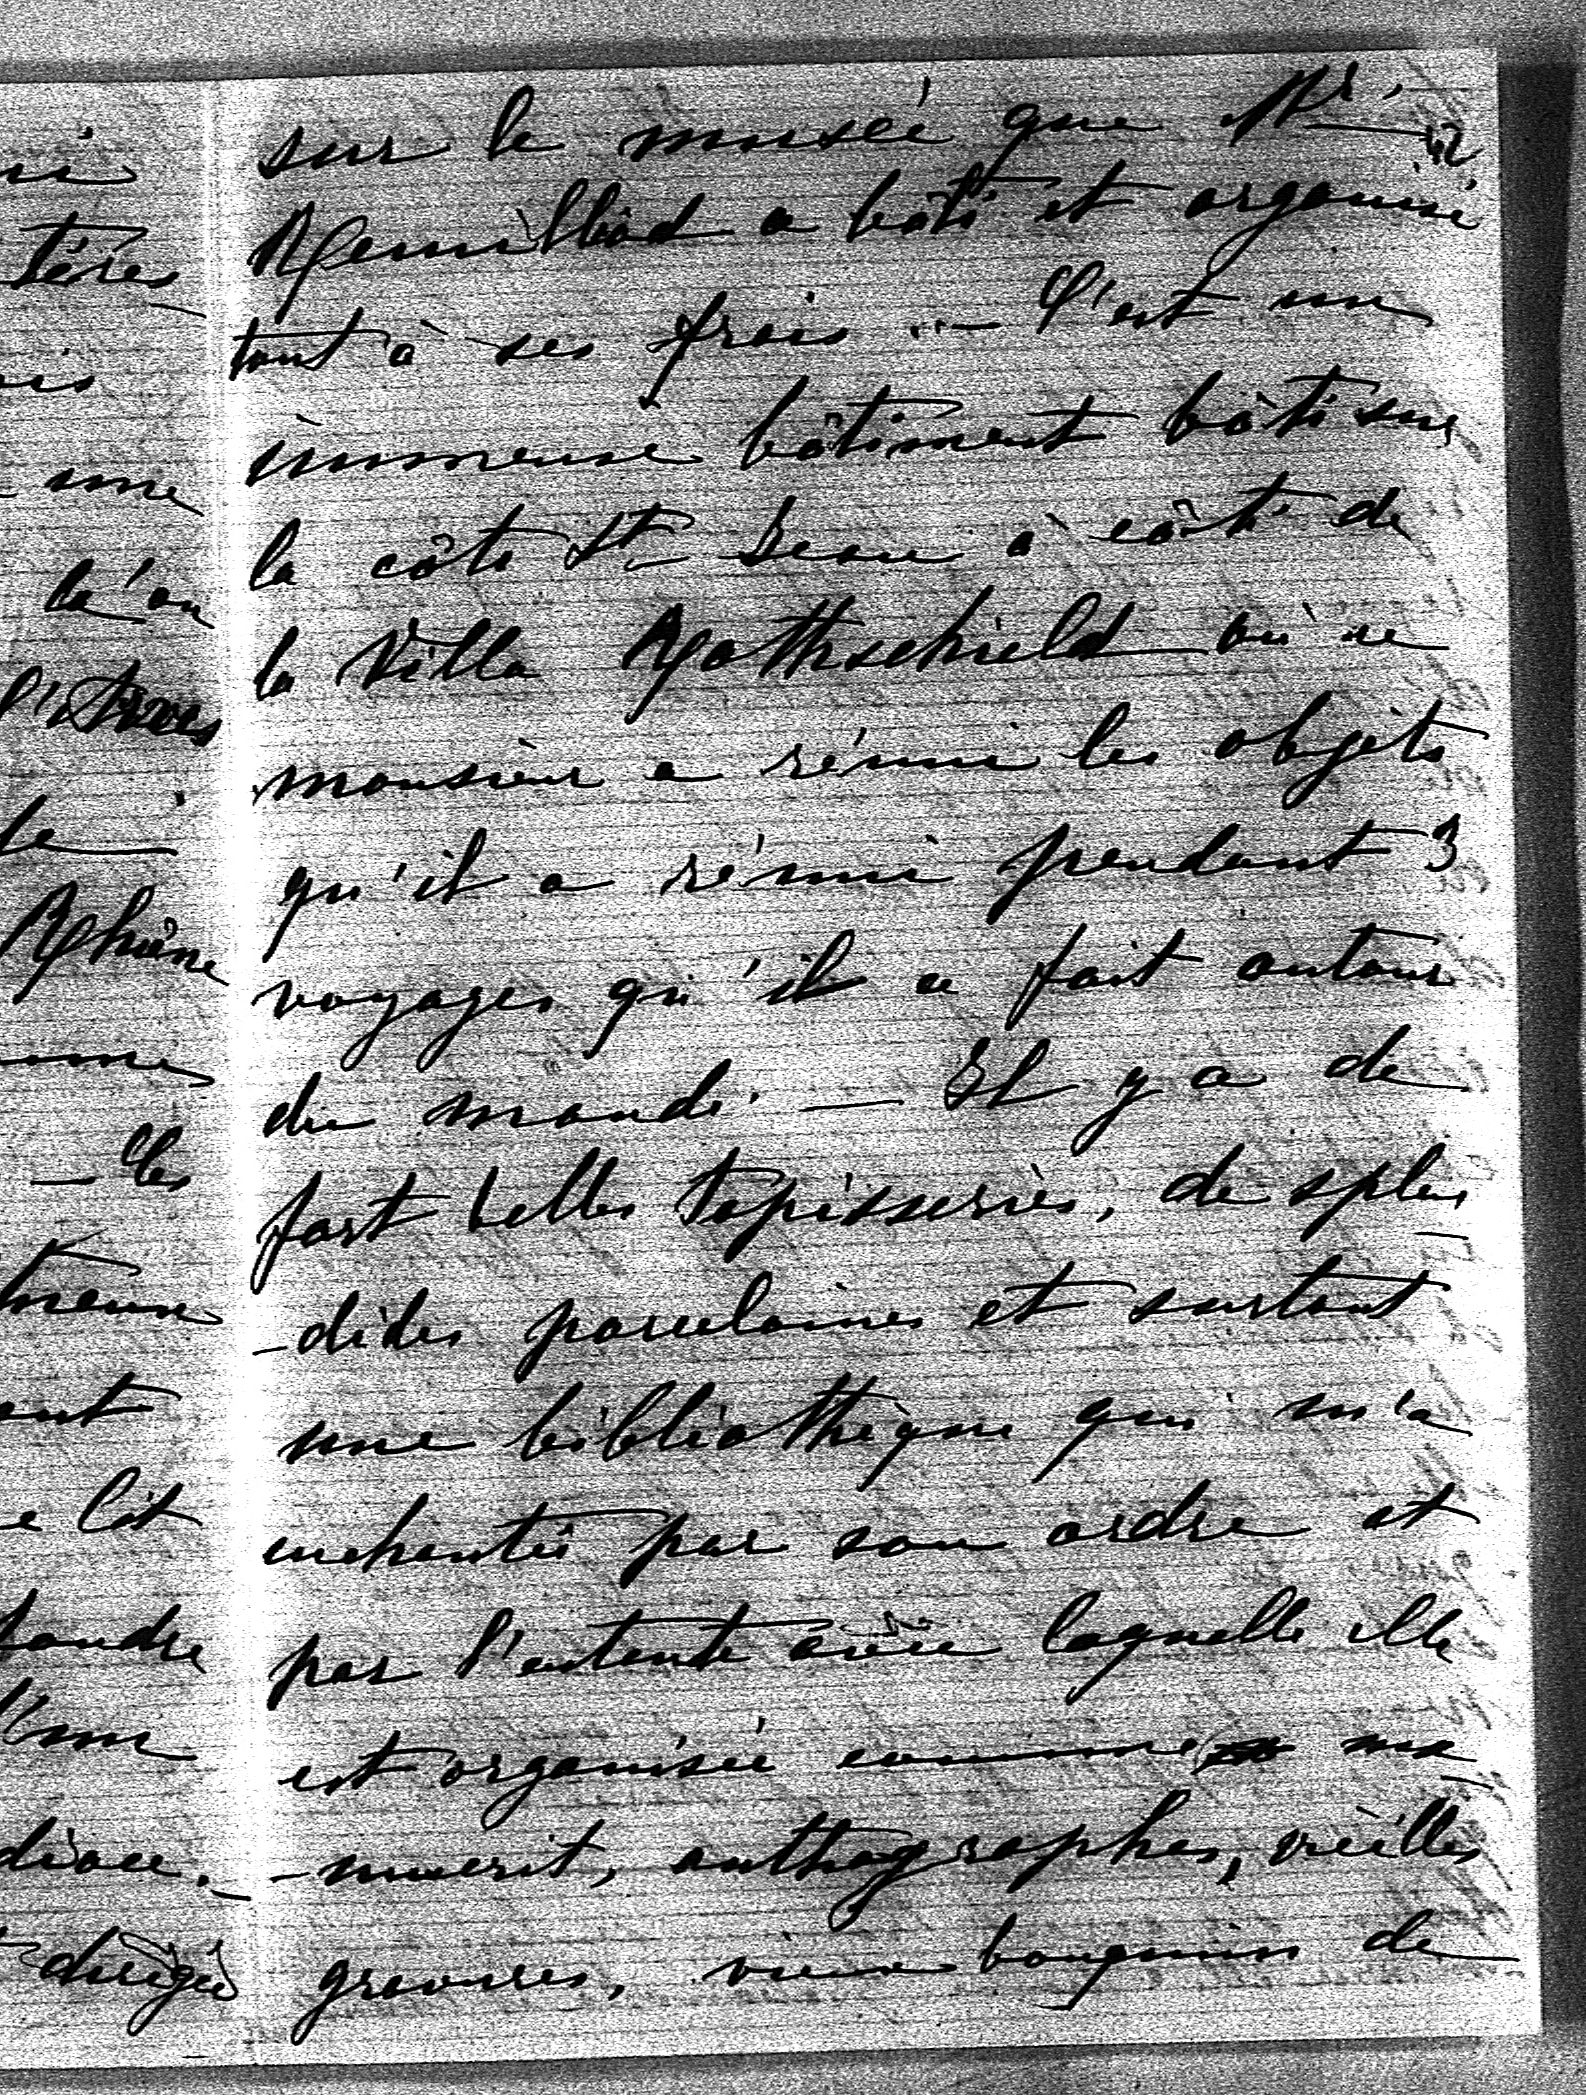 sur le musée que Mr.
42
Revilliod a bâti et organisé
tout à ses frais. — C'est un
immense bâtiment bâti sur
la côte St Jean à côté de
la Villa Rothschield où ce
monsieur a réuni les objets
qu'il a réuni pendant 3
voyages qu'il a fait autour
du monde. — Il y a de
fort belles tapisseries, de splen
-dides porcelaines et surtout
une bibliothèque qui m'a
enchantée par son ordre et
par l'entente avec laquelle elle
est organisée comme ma
-nuscrit, authographes, vieilles
gravures, vieux bouquins de
ni
tères
ais
une
là on
de
Rhône
— Les
ent
e lit
l'un
dirigée